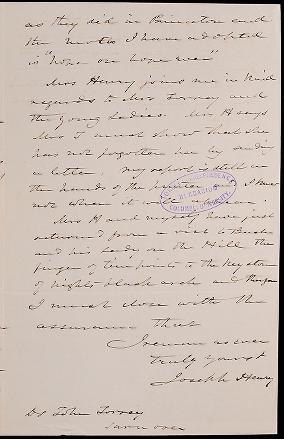 as they did in Princeton and
the motto I have adopted
is "hope on hope ever"
Mrs Henry joins me in kind
regards to Mrs Torrey and
the young Ladies. Mrs H says
Mrs T must show that she
has not forgotten her by sending
a letter. My report is still in
the hands of the printer I know
not when it will
Mrs H and myself have just
returned from a visit to
and his Lady on the Hill the
finger of time points to the key stone
of nights black arch and therefore
I must close with the
assurance that
I remain as ever
truly yours
Joseph Henry
Dr John Torrey
turn over